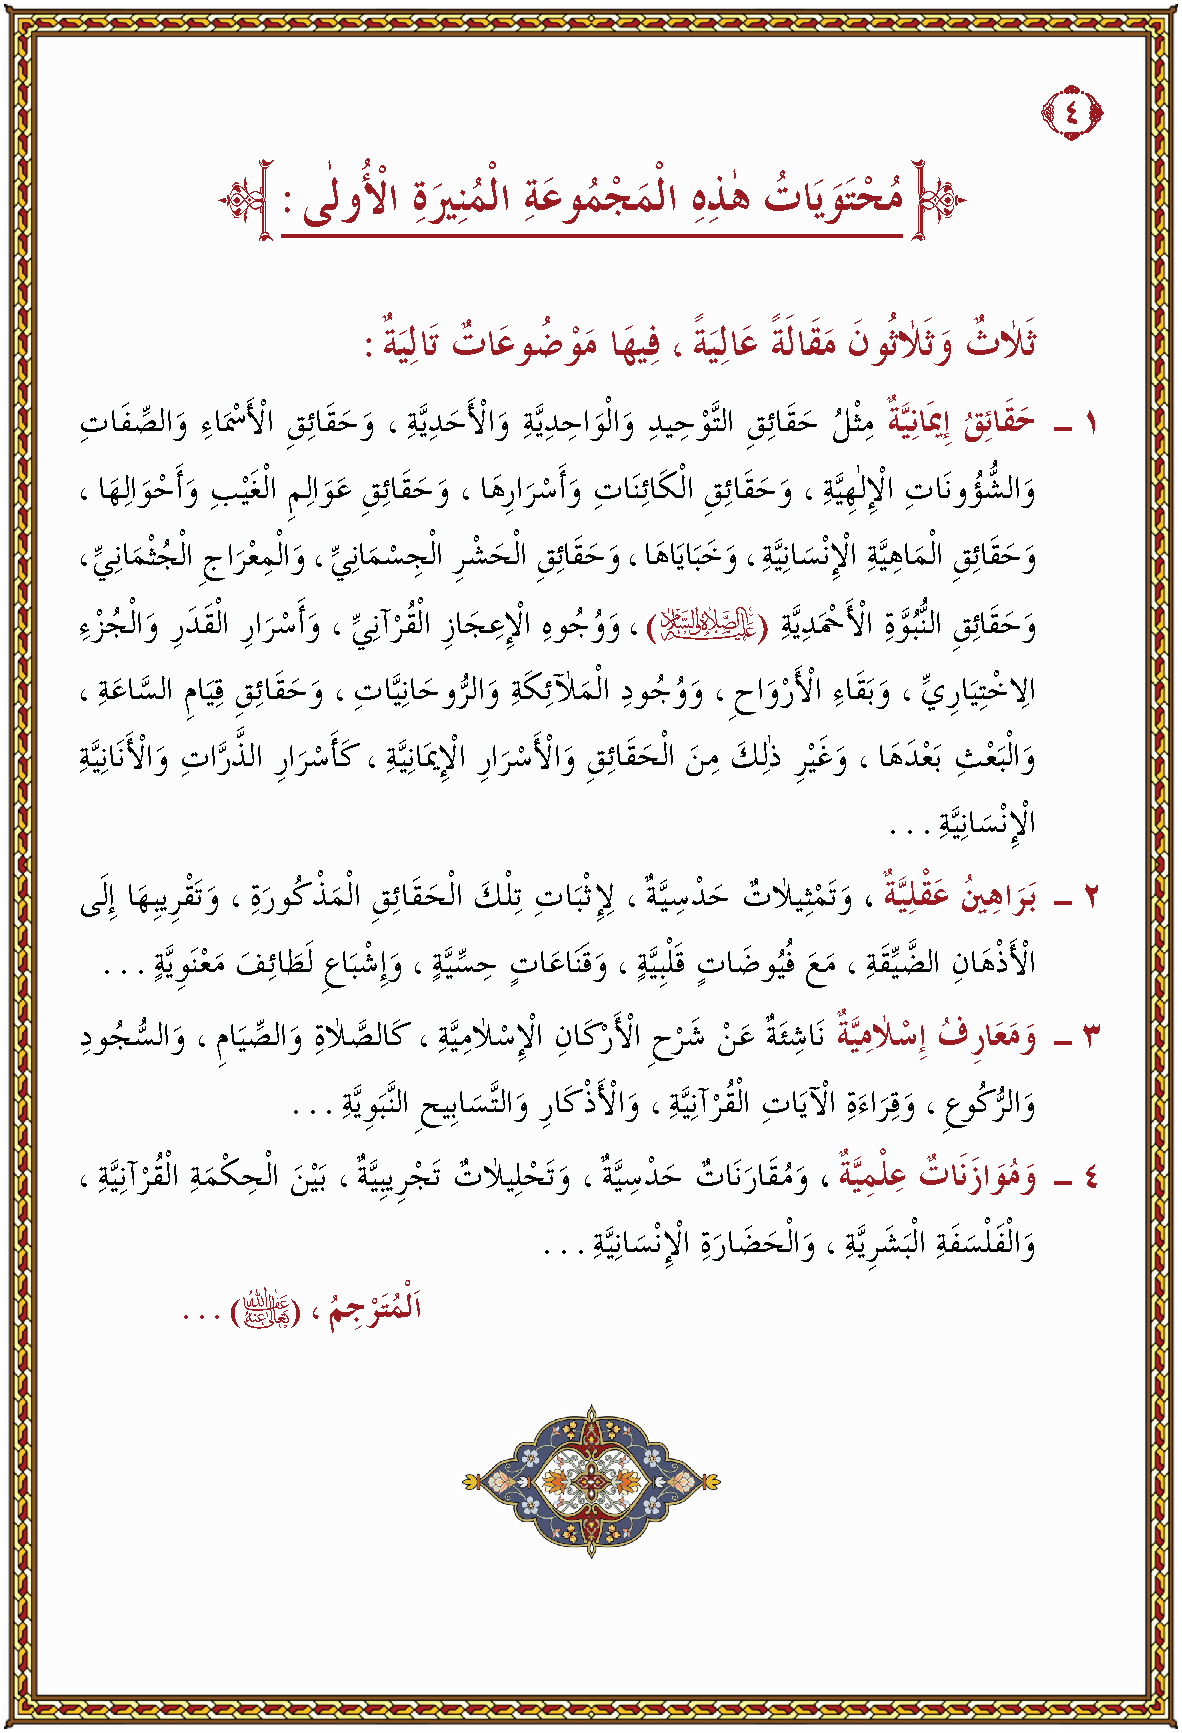 ٤
مُحْتَوَيَاتُ هٰذِهِ الْمَجْمُوعَةِ الْمُنِيرَةِ الْأُولٰى :
ثَلَاثٌ وَثَلَاثُونَ مَقَالَةً عَالِيَةً ، فِيهَا مَوْضُوعَاتٌ تَالِيَةٌ :
١ ــ حَقَائِقُ إِيمَانِيَّةٌ مِثْلُ حَقَائِقِ التَّوْحِيدِ وَالْوَاحِدِيَّةِ وَالْأَحَدِيَّةِ ، وَحَقَائِقِ الْأَسْمَاءِ وَالصِّفَاتِ
وَالشُّؤُونَاتِ الْإِلٰهِيَّةِ ، وَحَقَائِقِ الْكَائِنَاتِ وَأَسْرَارِهَا ، وَحَقَائِقِ عَوَالِمِ الْغَيْبِ وَأَحْوَالِهَا ،
وَحَقَائِقِ الْمَاهِيَّةِ الْإِنْسَانِيَّةِ ، وَخَبَايَاهَا ، وَحَقَائِقِ الْحَشْرِ الْجِسْمَانِيِّ ، وَالْمِعْرَاجِ الْجُثْمَانِيِّ ،
وَحَقَائِقِ النُّبُوَّةِ الْأَحْمَدِيَّةِ (عَلَيْهِ الصَّلَاةُ وَالسَّلَامُ) ، وَوُجُوهِ الْإِعْجَازِ الْقُرْآنِيِّ ، وَأَسْرَارِ الْقَدَرِ وَالْجُزْءِ
الِاخْتِيَارِيِّ ، وَبَقَاءِ الْأَرْوَاحِ ، وَوُجُودِ الْمَلَآئِكَةِ وَالرُّوحَانِيَّاتِ ، وَحَقَائِقِ قِيَامِ السَّاعَةِ ،
وَالْبَعْثِ بَعْدَهَا ، وَغَيْرِ ذٰلِكَ مِنَ الْحَقَائِقِ وَالْأَسْرَارِ الْإِيمَانِيَّةِ ، كَأَسْرَارِ الذَّرَّاتِ وَالْأَنَانِيَّةِ
الْإِنْسَانِيَّةِ . . .
٢ ــ بَرَاهِينُ عَقْلِيَّةٌ ، وَتَمْثِيلَاتٌ حَدْسِيَّةٌ ، لِإِثْبَاتِ تِلْكَ الْحَقَائِقِ الْمَذْكُورَةِ ، وَتَقْرِيبِهَا إِلَى
الْأَذْهَانِ الضَّيِّقَةِ ، مَعَ فُيُوضَاتٍ قَلْبِيَّةٍ ، وَقَنَاعَاتٍ حِسِّيَّةٍ ، وَإِشْبَاعِ لَطَائِفَ مَعْنَوِيَّةٍ . . .
٣ ــ وَمَعَارِفُ إِسْلَامِيَّةٌ نَاشِئَةٌ عَنْ شَرْحِ الْأَرْكَانِ الْإِسْلَامِيَّةِ ، كَالصَّلَاةِ وَالصِّيَامِ ، وَالسُّجُودِ
وَالرُّكُوعِ ، وَقِرَاءَةِ الْآيَاتِ الْقُرْآنِيَّةِ ، وَالْأَذْكَارِ وَالتَّسَابِيحِ النَّبَوِيَّةِ . . .
٤ ــ وَمُوَازَنَاتٌ عِلْمِيَّةٌ ، وَمُقَارَنَاتٌ حَدْسِيَّةٌ ، وَتَحْلِيلَاتٌ تَجْرِيبِيَّةٌ ، بَيْنَ الْحِكْمَةِ الْقُرْآنِيَّةِ ،
وَالْفَلْسَفَةِ الْبَشَرِيَّةِ ، وَالْحَضَارَةِ الْإِنْسَانِيَّةِ . . .
اَلْمُتَرْجِمُ ، (عَفَا اللّٰهُ تَعَالَى عَنْهُ) . . .